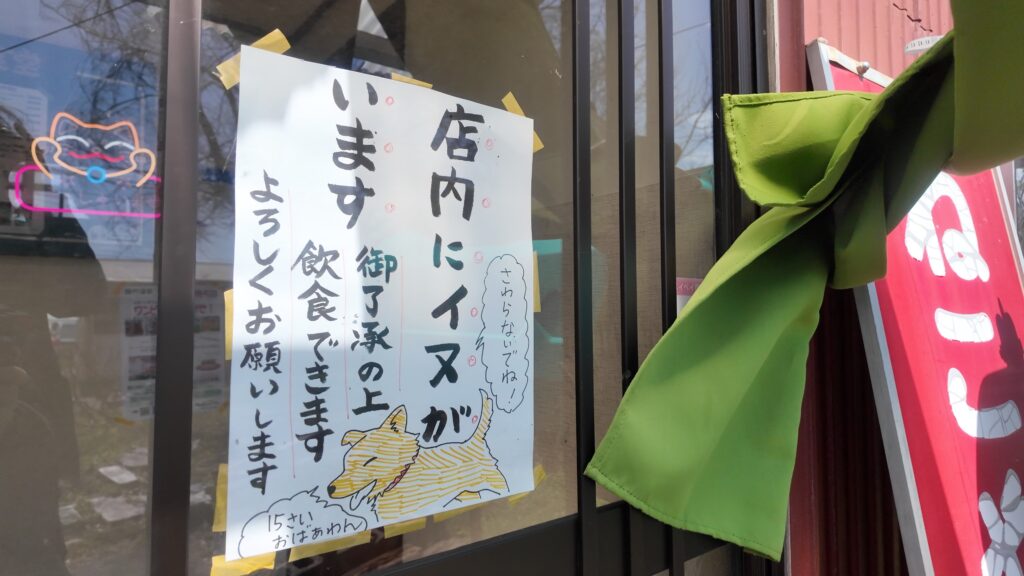 店内にイヌが
います
御了承の上
飲食できます
よろしくお願いします
さわらないでね!
15さい
おばぁわん
ねこ